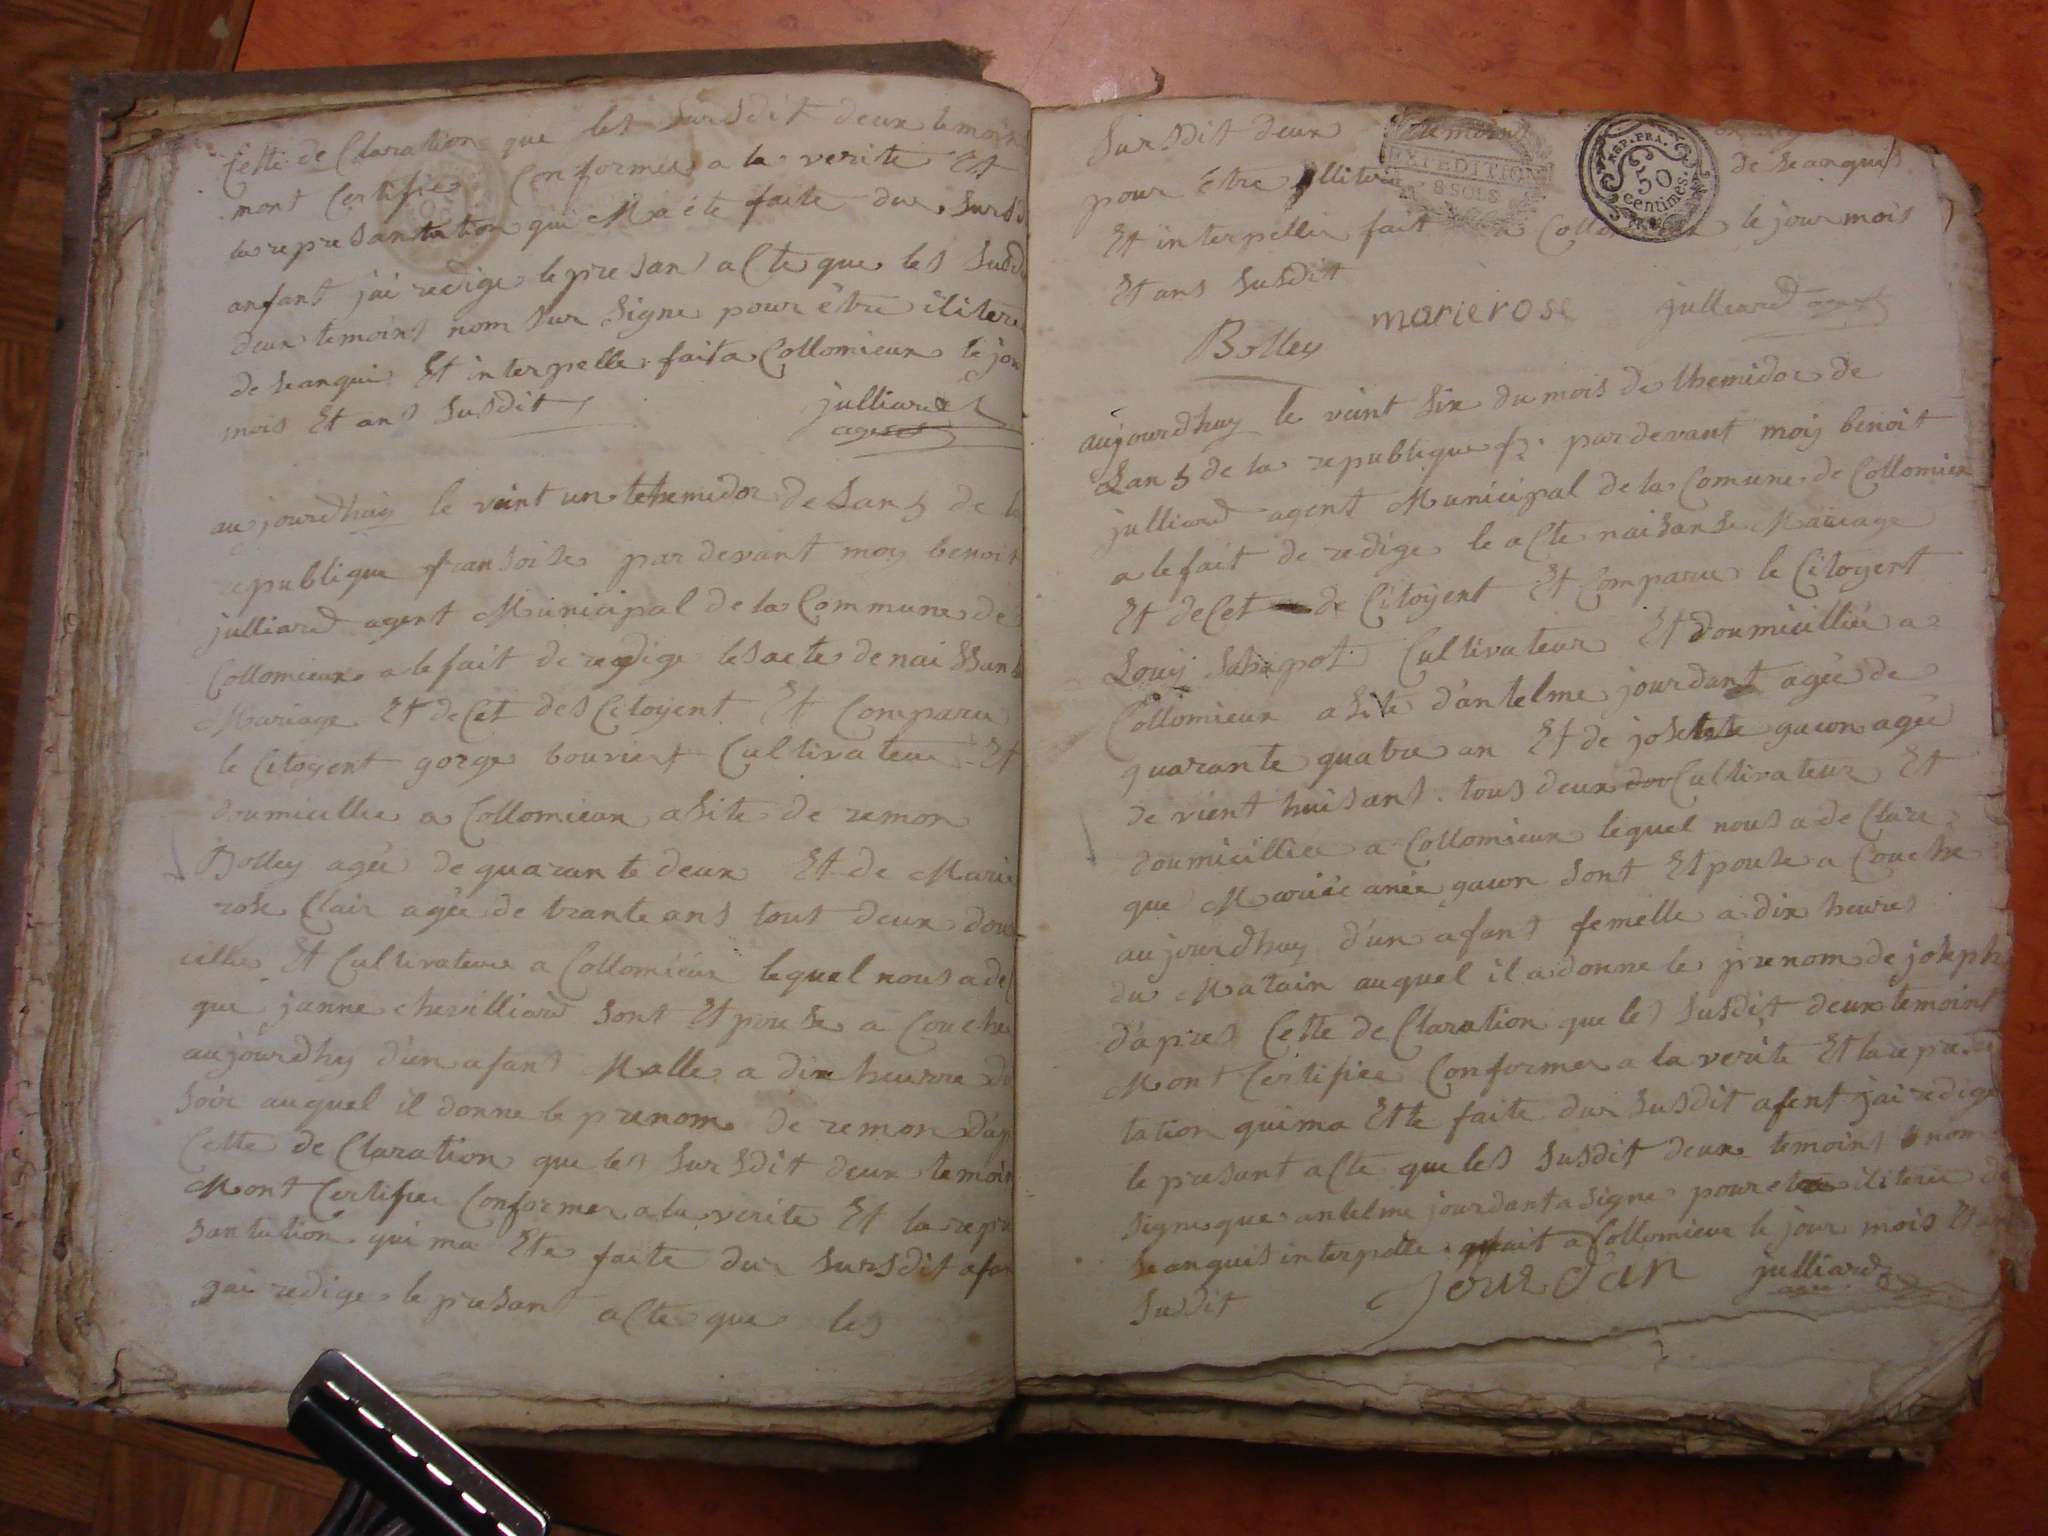 Cette de Claration que les Sursdit deux temoin
mont Certifie Conforme a la verite Et
la represantation qui M a ete faite du Sursd
anfant jai redige le presant acte que les Susd
deux temoins nom Sur Signe pour être ilitere
de seanqui Et interpelle fait a Collomieux le jou
mois Et ans Susdit
julliard
agent
aujourdhuy le vint un tehemidor de Lan 5 de la
republique fransoise par devant moy benoit
julliard agent Municipal de la Commune de
Collomieux a le fait de redige les acte de naissans
Mariage Et deCet des Citoyent Et Comparu
le Citoyent gorge bouvier Cultivateur Et
doumicellie a Collomieux asite de remon
Bolley agée de quarante deux Et de Marie
rose Clair agée de trante ans tous deux dou
cillie Et Cultivateur a Collomieux lequel nous a de
que janne chevilliard Sont Et pouse a Couche
aujourdhuy d'un afant Malle a dix heurre du
Soir auquel il donne le prenom de remon d'ap
Cette de Claration que les Sursdit deux temoin
Mont Certifiee Conforme a la verite Et la repre
santation qui ma Ete faite du Sursdit afan
jai redige le presant acte que les
Sursdit deux temoins
EXPEDITION
8 SOLS
REP. FRA.
50
centimes.
pour être illitere de seanquis
Et interpelle fait a le jour mois
Et ans Susdit
Bolley marierose julliard agent
aujourdhuy le veint six du mois de themidor de
Lan 5 de la republique f. par devant moy benoit
julliard agent Municipal de la Comune de Collomieu
a le fait de redige le acte naisanse Mariage
Et deCet de Citoyent Et Comparu le Citoyent
Louis Cultivateur Et doumicilliée a
Collomieux asite d'antelme jourdant agée de
quarante quatre an Et de josette gacon agée
de vient huis ans tous deux Cultivateur Et
doumicilliee a Collomieux lequel nous a de Clare
que Mariée anée gacon Sont Et pouse a Couche
aujourdhuy d'un afant femelle a dix heures
du Matain auquel il a donne le prenom de joseph
d'apres Cette de Claration que les Susdit deux temoint
Mont Certifiee Conforme a la verite Et la represan
tation qui ma Ette faite du Susdit afent jai redige
le presant acte que les Susdit deux temoint nom
Signe que antelme jourdant a Signe pour etre iliteree de
seanquis interpelle fait a Collomieux le jour mois Et an
Susdit
jourdan julliard
agent